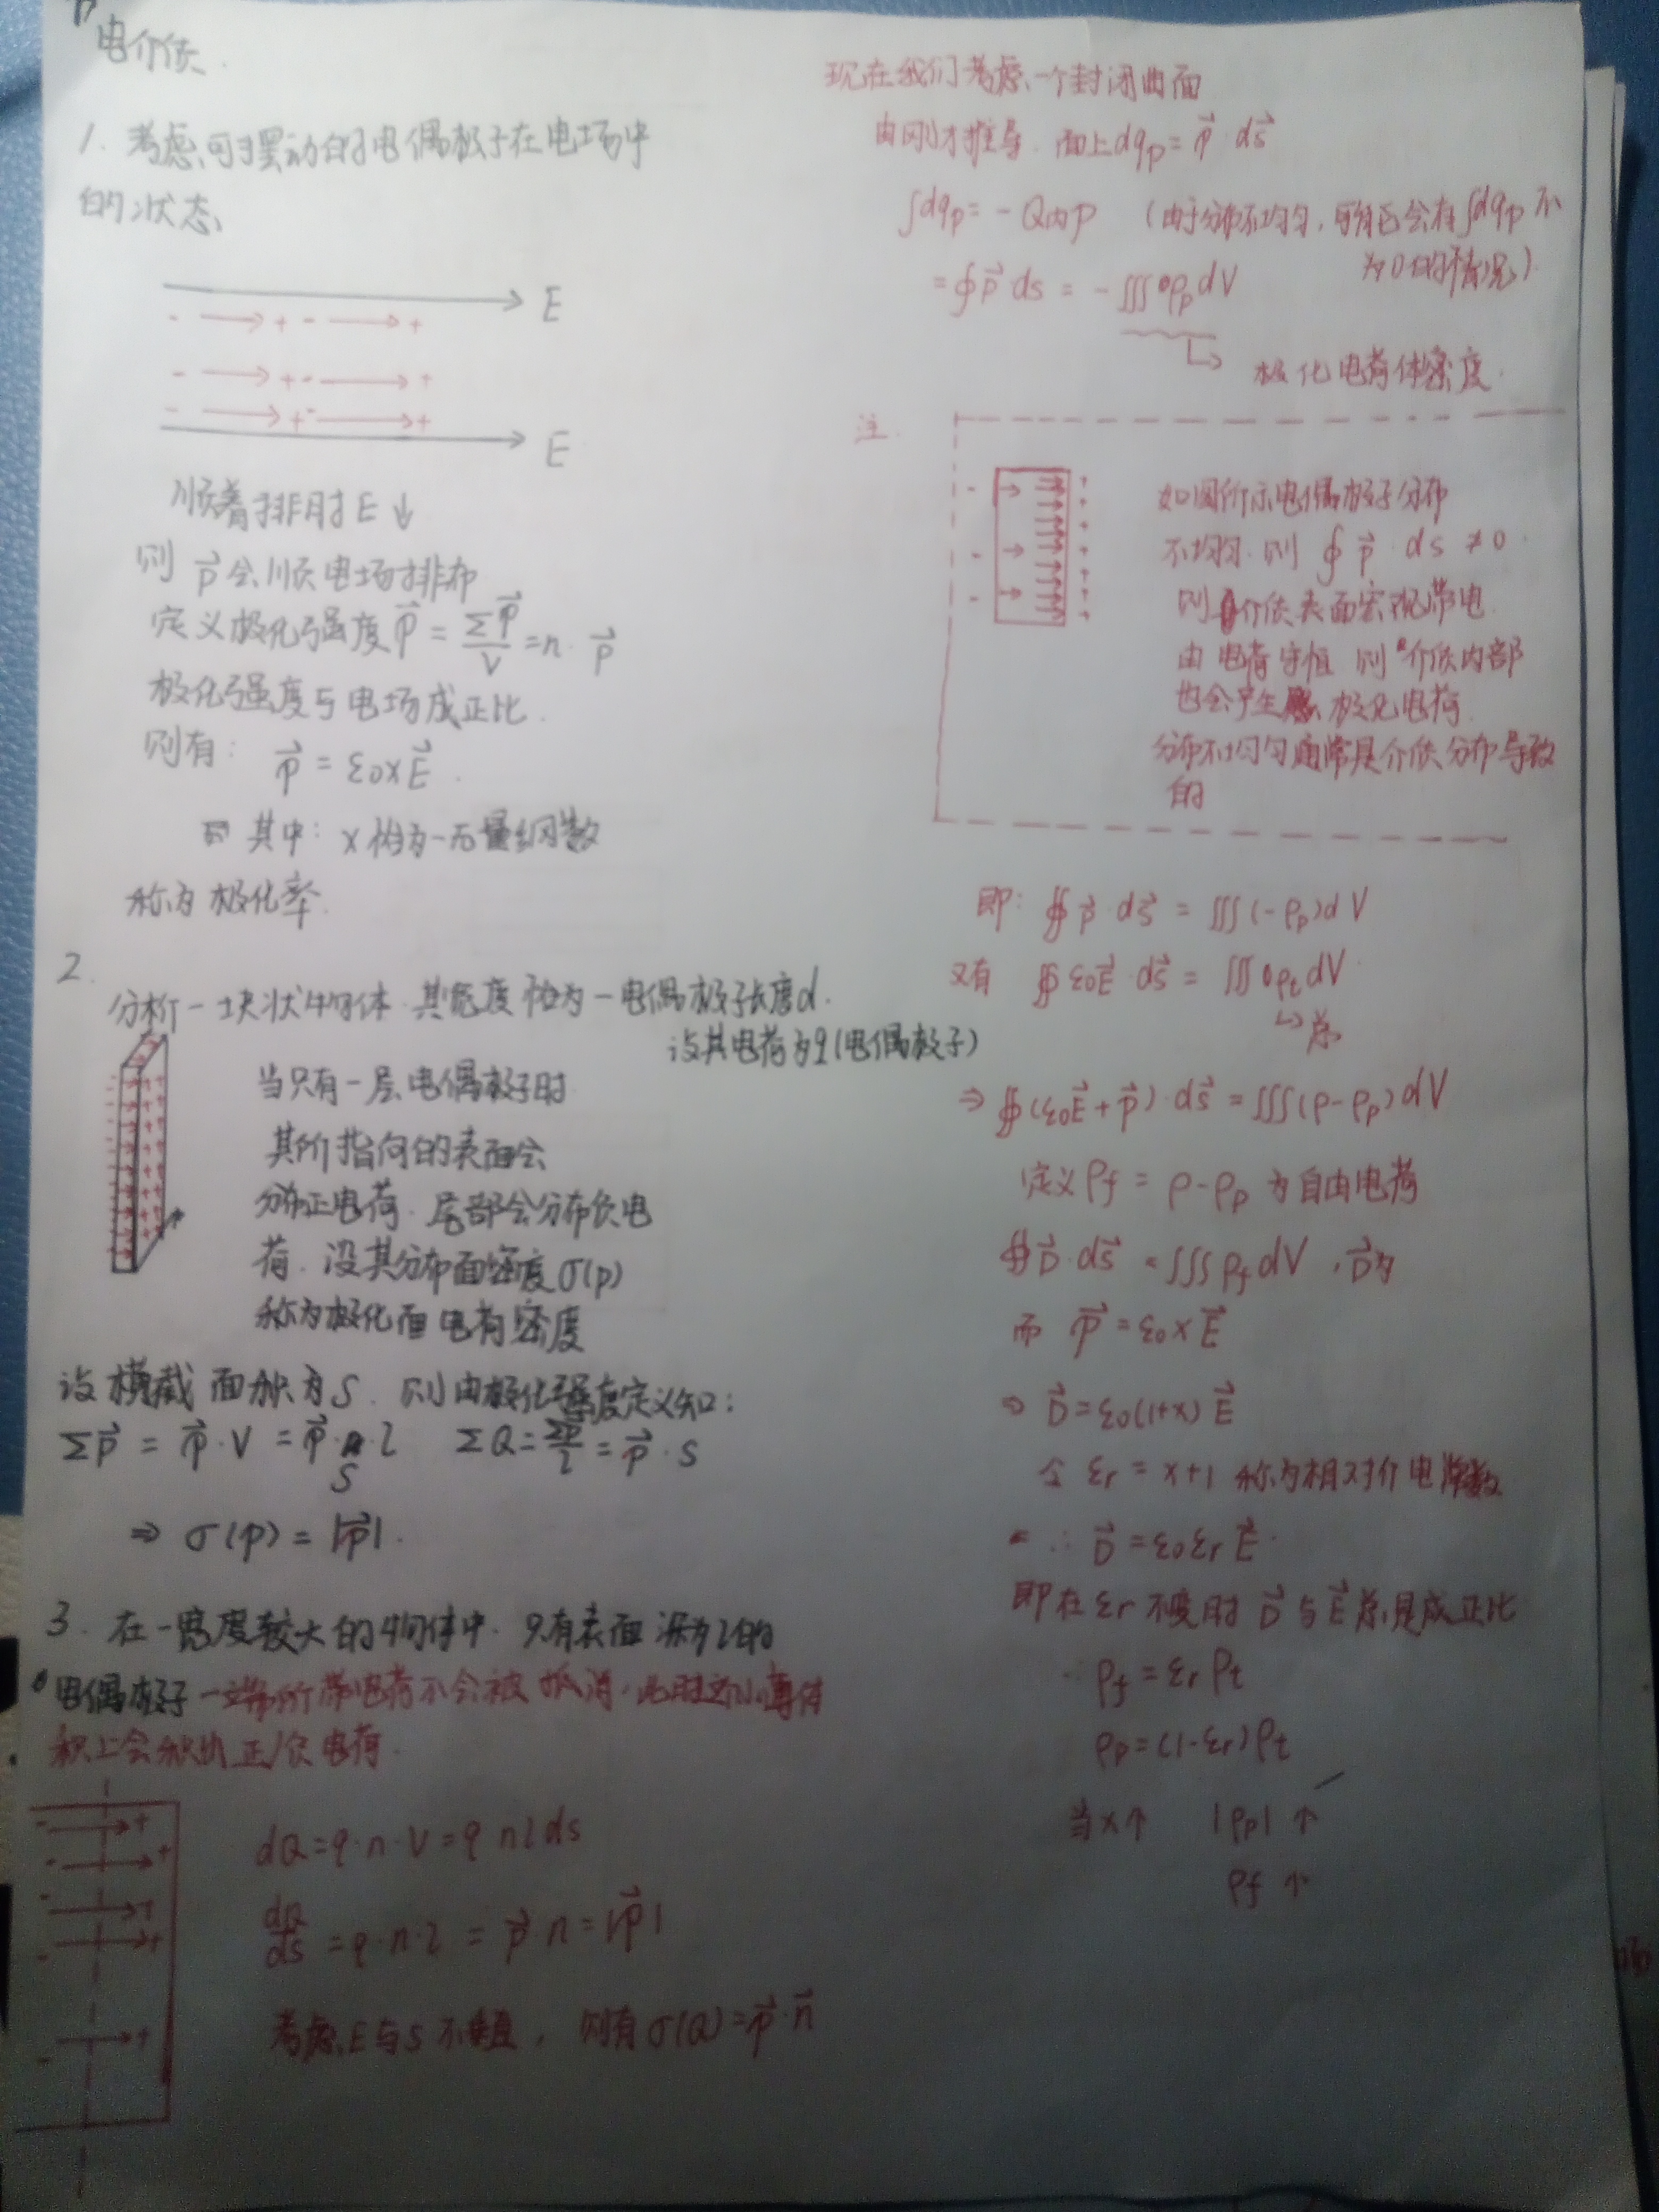 电介质.
1. 考虑可摆动的电偶极子在电场中
的状态
E
- → + - → +
- → + - → +
- → + - → +
E
顺着排时 E ↓
则 p⃗ 会顺电场排布
定义极化强度 P⃗ = Σp⃗/V = n · p⃗
极化强度与电场成正比.
则有: P⃗ = ε0χE⃗.
其中: χ 恰为一无量纲数
称为极化率.
2.
分析一块状物体. 其宽度恰为一电偶极子长度d.
设其电荷为q(电偶极子)
当只有一层电偶极子时
其所指向的表面会
分布正电荷. 尾部会分布负电
荷. 设其分布面密度σ(p)
称为极化面电荷密度
设横截面积为S. 则由极化强度定义知:
Σp⃗ = P⃗·V = P⃗·S·l ΣQ = Σp/l = P⃗·S
⇒ σ(p) = |P⃗|.
3. 在一宽度较大的物体中. 只有表面深为l的
电偶极子一端所带电荷不会被抵消. 此时这小薄体
积上会积出正/负电荷.
dQ = q·n·V = q n l ds
dQ/ds = q·n·l = p⃗·n = |P⃗|
考虑E与S不垂直, 则有σ(Q) = P⃗·n⃗
现在我们考虑一个封闭曲面
由刚才推导. 面上dqp = P⃗·ds⃗
∫dqp = -Q内p (由于分布不均匀, 可能会存在∫dqp不
为0的情况).
= ∮P⃗·ds = -∭ρp dV
↳ 极化电荷体密度.
注.
如图所示电偶极子分布
不均匀. 则 ∮P⃗·ds ≠ 0.
则介质表面宏观带电.
由电荷守恒 则介质内部
也会产生极化电荷.
分布不均匀通常是介质分布导致
的
即: ∯P⃗·ds⃗ = ∭(-ρp)dV
又有 ∯ε0E⃗·ds⃗ = ∭ρt dV
↳ 总
⇒ ∯(ε0E⃗+P⃗)·ds⃗ = ∭(ρ-ρp)dV
定义ρf = ρ-ρp 为自由电荷
∯D⃗·ds⃗ = ∭ρf dV , D⃗为
而 P⃗ = ε0χE⃗
⇒ D⃗ = ε0(1+χ)E⃗
令 εr = χ+1 称为相对介电常数
∴ D⃗ = ε0εrE⃗.
即在εr不变时 D⃗与E⃗总是成正比
∴ ρf = εrρt
ρp = (1-εr)ρt
当χ↑ |ρp| ↑
ρf ↑